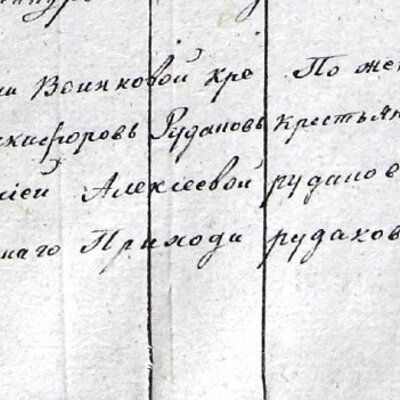 ии Воинковой кре По же
икифоровъ Рудаковъ крестьян
сіеи Алексеевой рудаков
наго Прихода рудаков